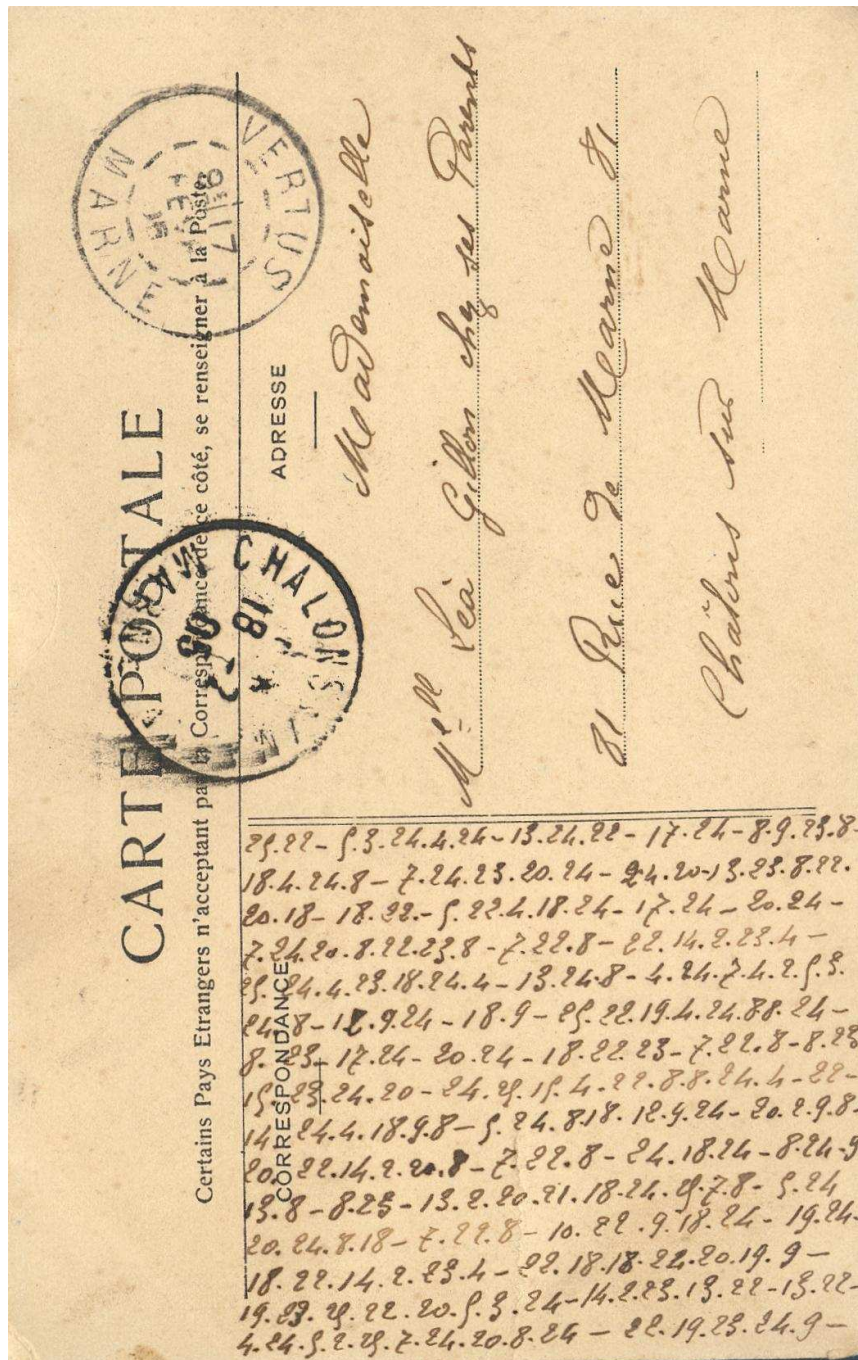 CARTE POSTALE
Certains Pays Etrangers n'acceptant pas la Correspondance de ce côté, se renseigner à la Poste.
VERTUS
MARNE
CHALONS
ADRESSE
Mademoiselle
Melle Léa Gillon chez ses Parents
81 Rue de Marne 81
Châlons sur Marne
CORRESPONDANCE
25.22-5.3.24.4.24-13.24.22-17.24-8.9.23.8-
18.4.24.8-7.24.23.20.24-24.20-13.23.8.22.
20.18-18.22.-5.22.4.18.24-17.24-20.24-
7.24.20.8.22.23.8-7.22.8-22.14.2.23.4-
25.24.4.23.18.24.4-13.24.8-4.24.7.4.2.5.3.
24.8-12.9.24-18.9-25.22.19.4.24.88.24-
8.23-17.24-20.24-18.22.23-7.22.8-8.23
15.23.24.20-24.25.15.4.22.8.8.24.4-22-
14.24.4.18.9.8-5.24.8.18.12.9.24-20.2.9.8-
20.22.14.2.20.8-7.22.8-24.18.24-8.24.9
13.8-8.23-13.2.20.21.18.24.25.7.8-5.24
20.24.8.18-7.22.8-10.22.9.18.24-19.24-
18.22.14.2.23.4-22.18.18.24.20.19.9-
19.23.25.22.20.5.3.24-14.2.23.13.22-13.22-
4.24.5.2.25.7.24.20.8.24-22.19.23.24.9-